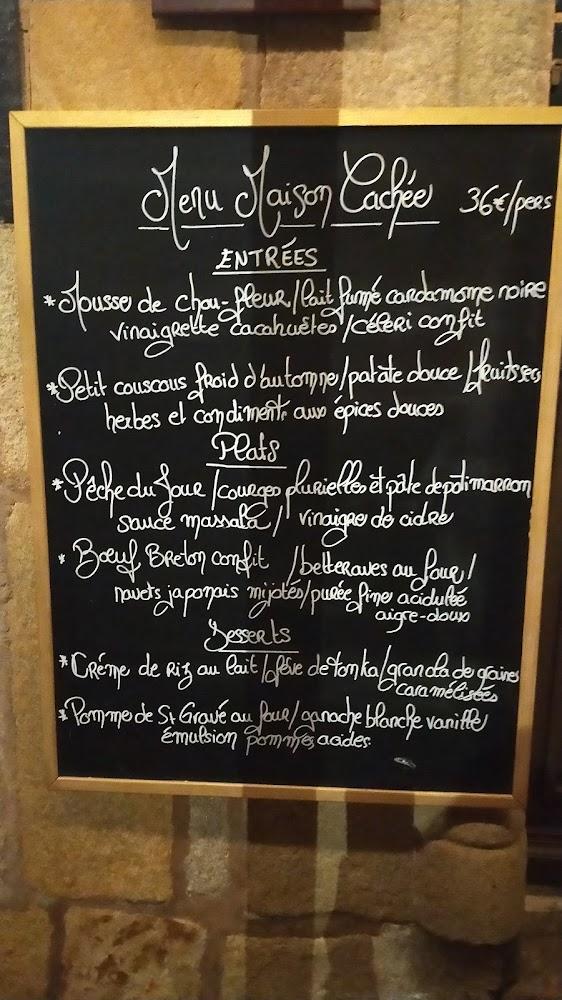 Menu Maison Cachée 36€/pers
ENTRÉES
*Mousse de chou-fleur/lait fumé cardamome noire
vinaigrette cacahuètes/céleri confit
*Petit couscous froid d'automne/patate douce/fruits secs
herbes et condiment aux épices douces
Plats
*Pêche du Jour/courges plurielles et pâte de potimarron
sauce massala/ vinaigre de cidre
* Bœuf Breton confit /betteraves au four/
navets japonais mijotés/purée fine acidulée
aigre-doux
Desserts
*Crème de riz au lait/fève de tonka/granola de graines
caramélisées
*Pomme de St Gravé au four/ganache blanche vanille
émulsion pommes acides.